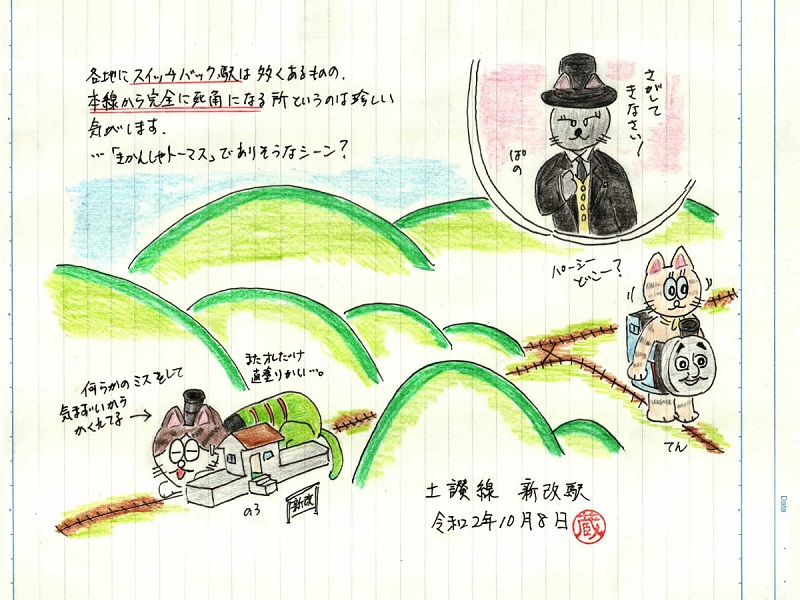 各地にスイッチバック駅は多くあるものの、
本線から完全に死角になる所というのは珍しい
気がします.
…「きかんしゃトーマス」でありそうなシーン？
さがして
きなさい！
ぱの
パーシー
どこー？
てん
またオレだけ
直塗りかい…。
何らかのミスをして
気まずいから
かくれてる
のろ
新改
土讃線 新改駅
令和2年10月8日
蔵
Date